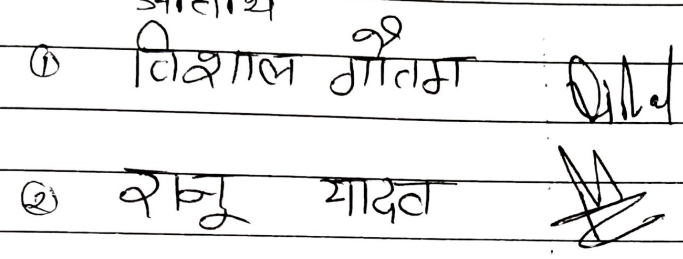 ① विशाल गौतम
② रानू यादव